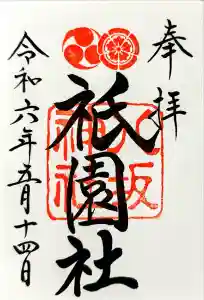 奉拝
八坂神社
祇園社
令和六年五月十四日